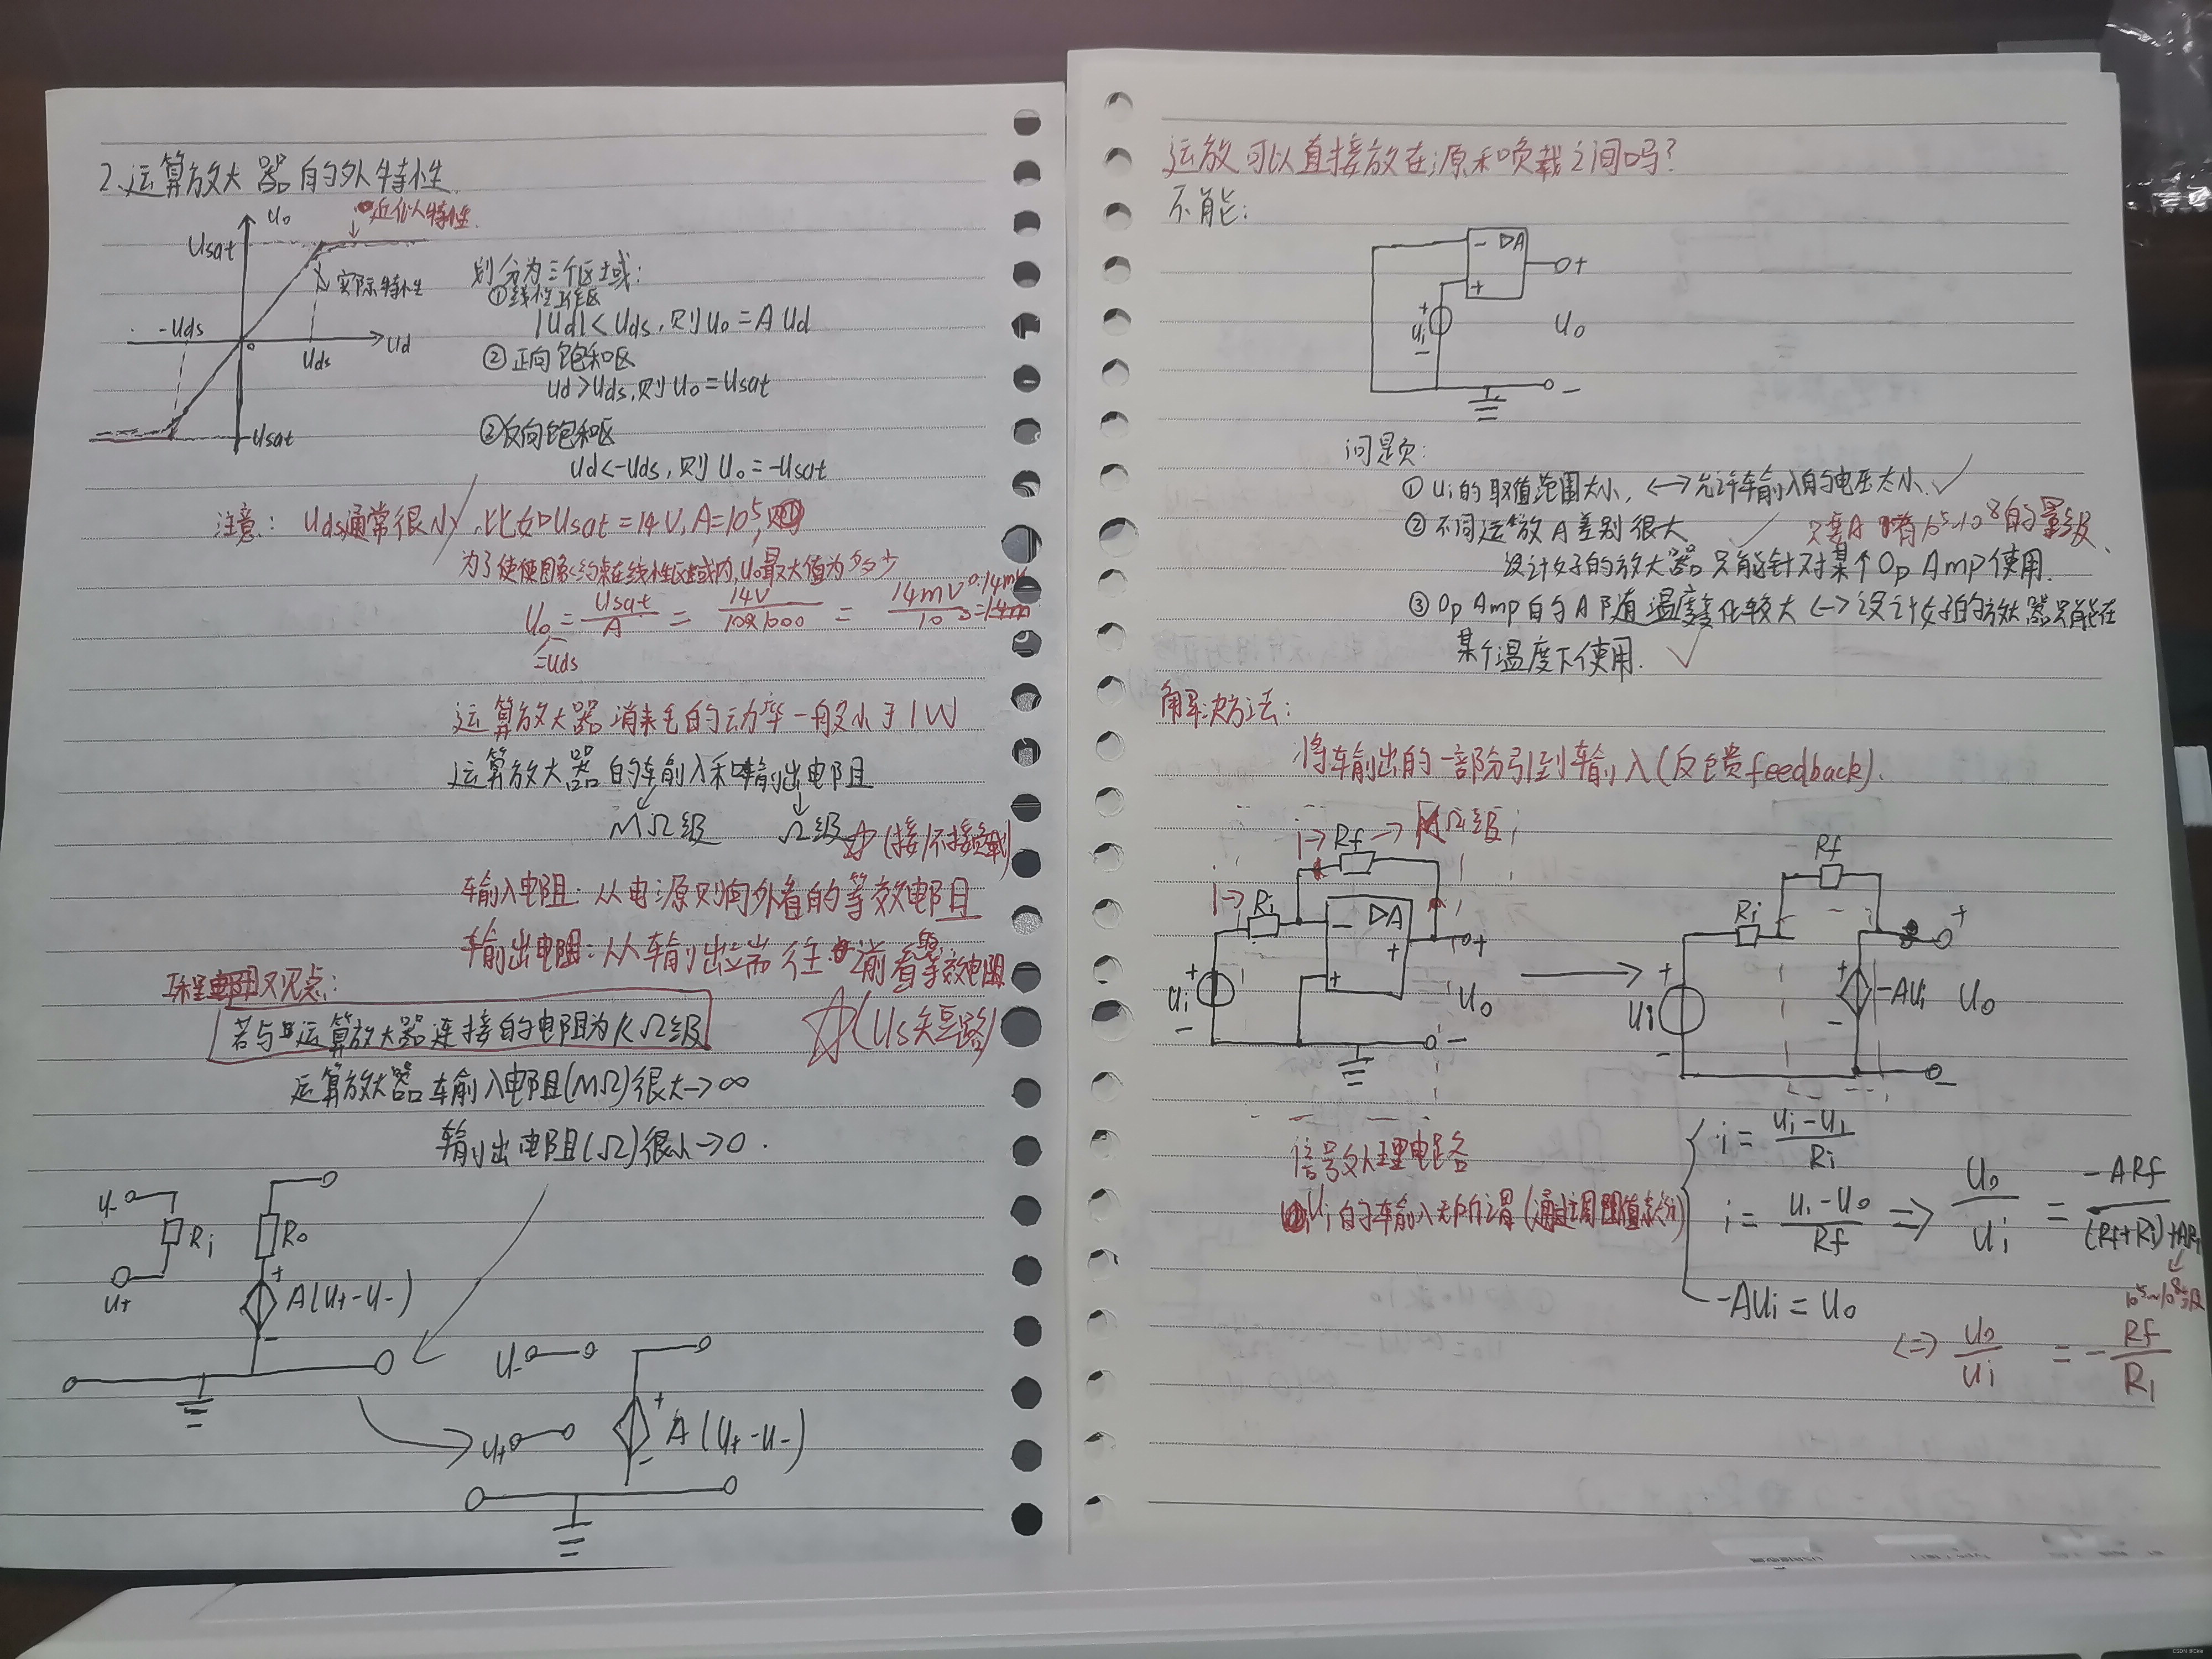 2.运算放大器的外特性
Uo
近似特性
Usat
实际特性
-Uds
Uds
Ud
-Usat
划分为三个区域:
①线性工作区
|Ud|<Uds,则Uo=AUd
②正向饱和区
Ud>Uds,则Uo=Usat
③反向饱和区
Ud<-Uds,则Uo=-Usat
注意: Uds通常很小,比如Usat=14V,A=10^5,则
约束在线性区域内,Uo最大值为多少
Uo = Usat/A = 14V/
=Uds
0.14mV
运算放大器消耗的功率一般小于1W
运算放大器的输入和输出电阻
MΩ级 Ω级 ☆(接/不接负载)
输入电阻:从电源侧向外看的等效电阻
输出电阻:从输出端往前看等效电阻
工程观点:
☆(Us短路)
若与运算放大器连接的电阻为KΩ级
运算放大器输入电阻(MΩ)很大→∞
输出电阻(Ω)很小→0.
U-
Ri
U+
Ro
+
A(U+-U-)
-
U-
U+
+
A(U+-U-)
-
运放可以直接放在源和负载之间吗?
不能:
- ▷A
+
+
Ui
-
+
Uo
-
问题:
①Ui的取值范围太小, ↔允许输入的电压太小.✓
②不同运放A差别很大 ✓ 只要A有10^5~10^8的量级
设计好的放大器只能针对某个Op Amp使用.
③Op Amp的A随温度变化较大↔设计好的放大器只能在
某个温度下使用. ✓
解决方法:
将输出的一部分引到输入(反馈feedback).
i→ Rf → Ω级
i→ Ri
- ▷A
+
+
+
Ui
-
+
Uo
-
Rf
Ri
+
Ui
-
+
-AUi
-
+
Uo
-
信号处理电路
Ui的输入无所谓
i = (Ui-U1)/Ri
i = (U1-Uo)/Rf ⇒ Uo/Ui = -ARf/((Rf+Ri)+ARi)
10^5~10^8级
-AUi=Uo
⇔ Uo/Ui = -Rf/R1